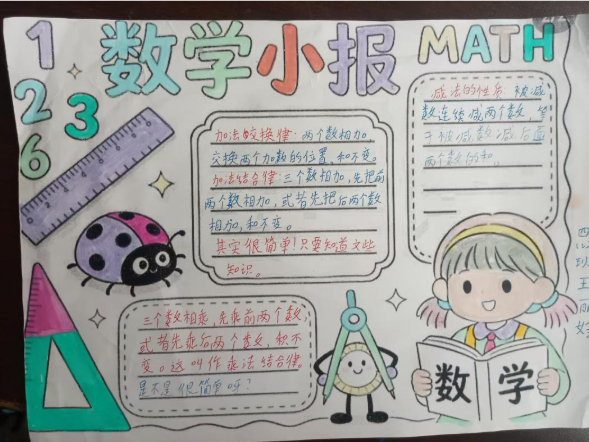 1 2 3 6
数学小报
MATH
加法交换律：两个数相加
交换两个加数的位置，和不变。
加法结合律：三个数相加，先把前
两个数相加，或者先把后两个数
相加，和不变。
其实很简单！只要知道这些
知识。
减法的性质：被减
数连续减两个数，等
于被减数减后面
两个数的和。
三个数相乘，先乘前两个数，
或者先乘后两个数，积不
变。这叫作乘法结合律。
是不是很简单呀？
数学
四
王